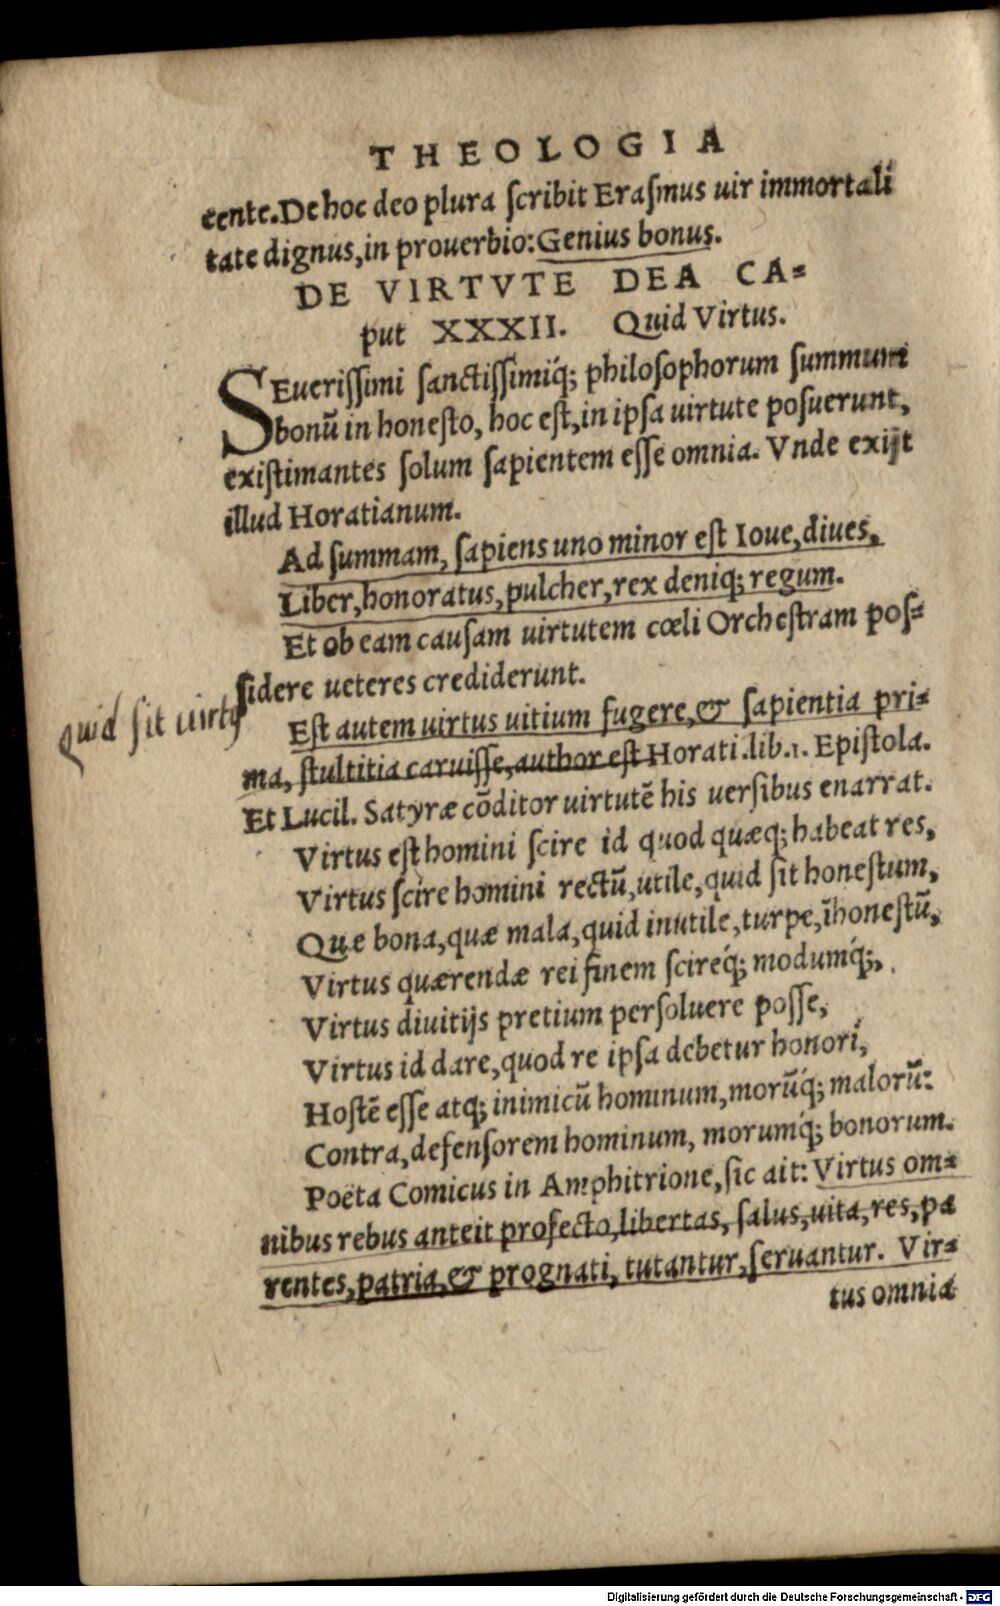 THEOLOGIA
cente. De hoc deo plura ſcribit Eraſmus uir immortali
tate dignus, in prouerbio: Genius bonus.
DE VIRTVTE DEA CA-
put XXXII. Quid Virtus.
SEueriſſimi ſanctiſſimiq́; philoſophorum ſummum
bonū in honeſto, hoc eſt, in ipſa uirtute poſuerunt,
exiſtimantes ſolum ſapientem eſſe omnia. Vnde exijt
illud Horatianum.
Ad ſummam, ſapiens uno minor eſt Ioue, diues,
Liber, honoratus, pulcher, rex deniq; regum.
Et ob eam cauſam uirtutem cœli Orcheſtram poſ-
ſidere ueteres crediderunt.
quid ſit uirtꝰ
Eſt autem uirtus uitium fugere, & ſapientia pri-
ma, ſtultitia caruiſſe, author eſt Horati. lib. 1. Epiſtola.
Et Lucil. Satyræ cōditor uirtutē his uerſibus enarrat.
Virtus eſt homini ſcire id quod quæq; habeat res,
Virtus ſcire homini rectū, utile, quid ſit honeſtum,
Quæ bona, quæ mala, quid inutile, turpe, īhoneſtū,
Virtus quærendæ rei finem ſcireq́; modumq́;,
Virtus diuitijs pretium perſoluere poſſe,
Virtus id dare, quod re ipſa debetur honori,
Hoſtē eſſe atq; inimicū hominum, morūq́; malorū:
Contra, defenſorem hominum, morumq́; bonorum.
Poëta Comicus in Amphitrione, ſic ait: Virtus om-
nibus rebus anteit profecto, libertas, ſalus, uita, res, pa
rentes, patria, & prognati, tutantur, ſeruantur. Vir-
tus omnia
Digitalisierung gefördert durch die Deutsche Forschungsgemeinschaft - DFG